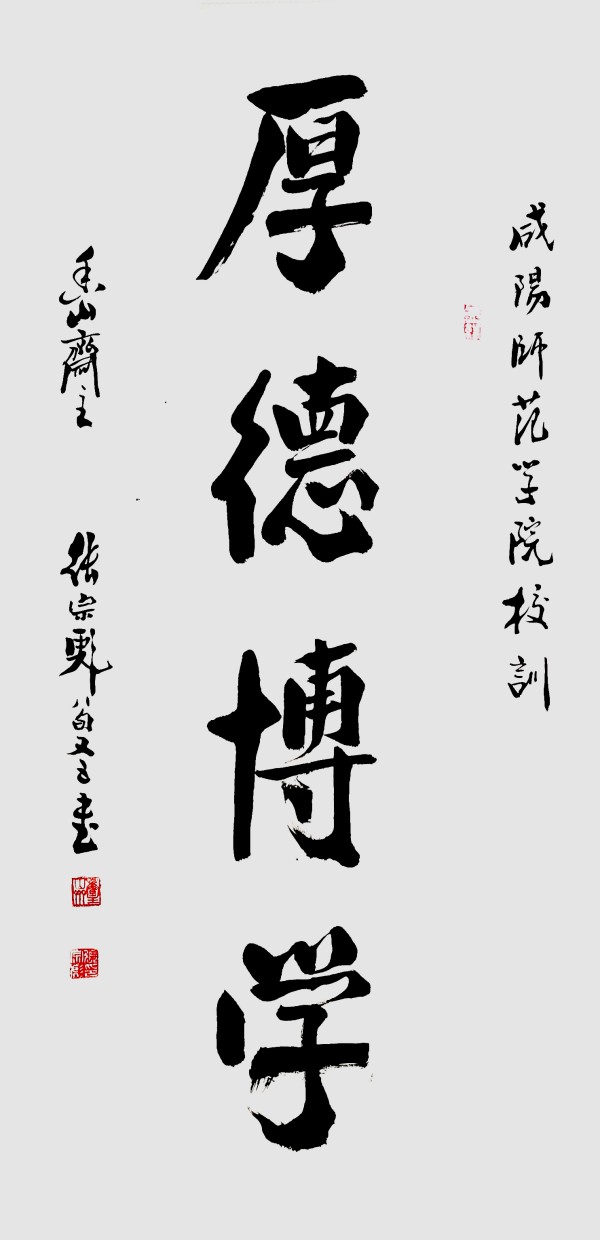 咸陽師范学院校訓
厚德博学
香山齋主 張宗彪 八旬又五書